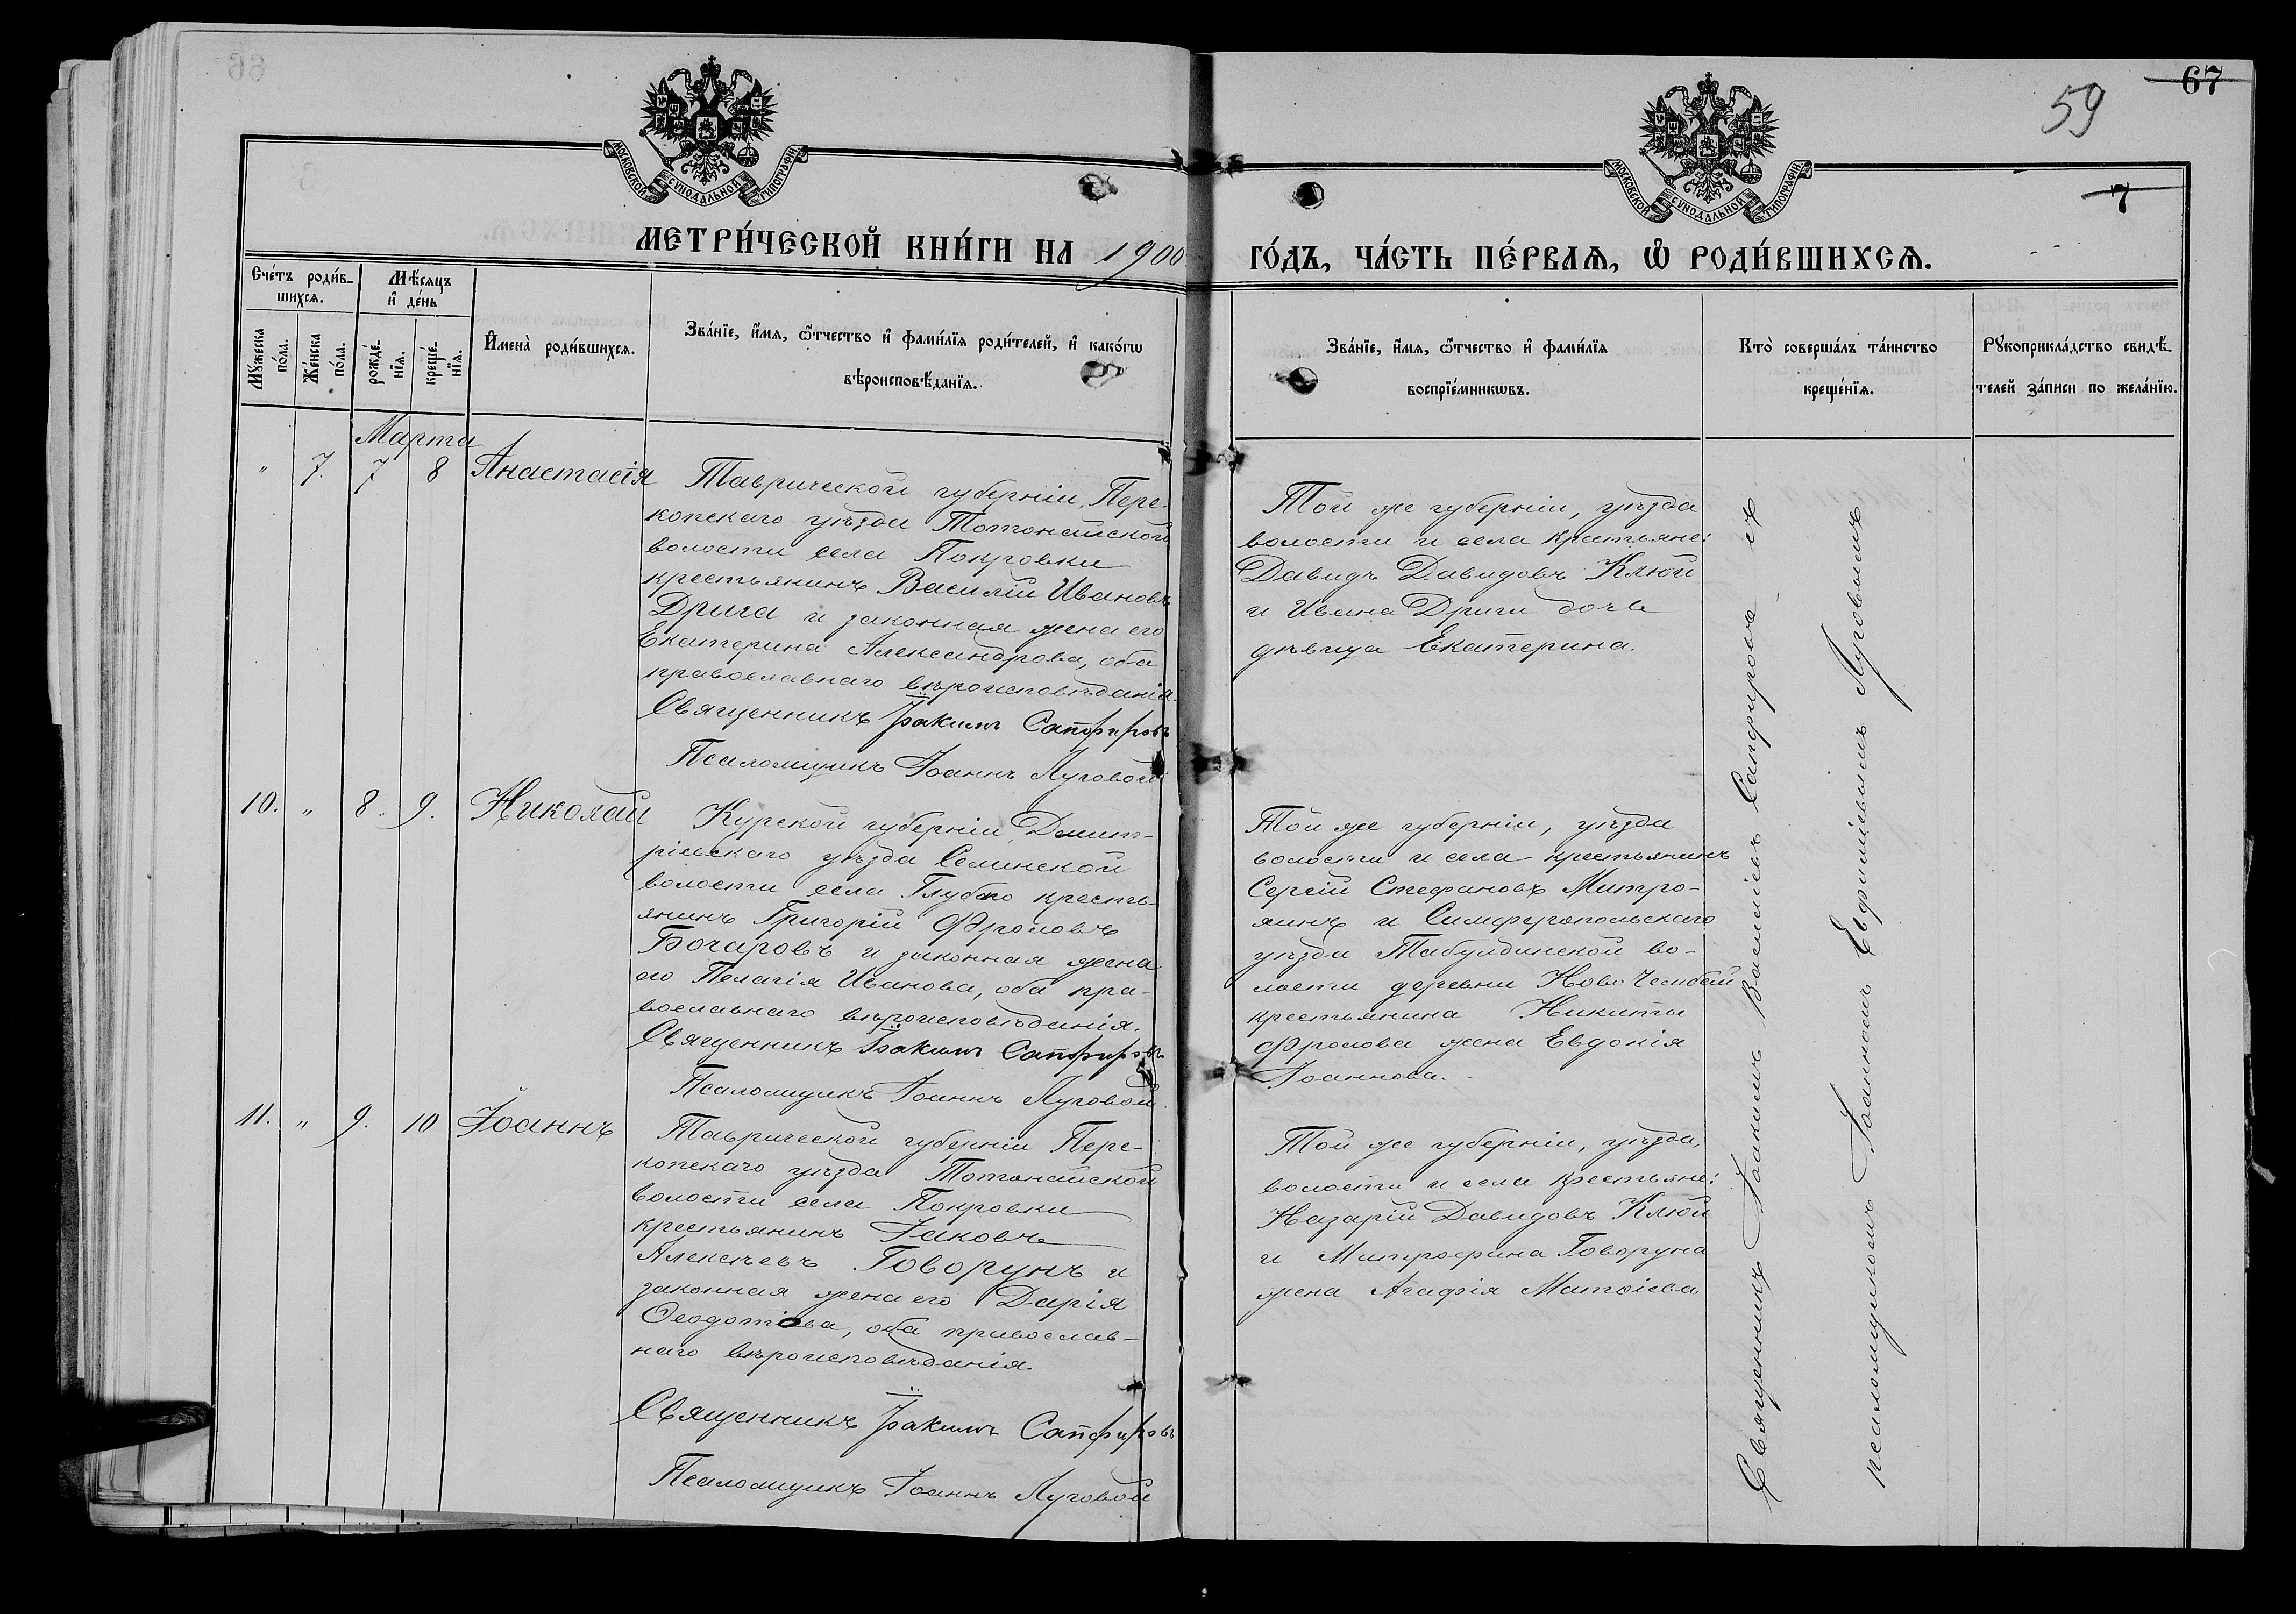 67
59
7
МОСКОВСКОЙ СѴНОДАЛЬНОЙ ТИПОГРАФІИ
МОСКОВСКОЙ СѴНОДАЛЬНОЙ ТИПОГРАФІИ
МЕТРИ́ЧЕСКОЙ КНИ́ГИ НА 1900 ГО́ДЪ, ЧА́СТЬ ПЕ́РВАѦ, Ѿ РОДИ́ВШИХСѦ.
Сче́тъ роди́в-
шихсѧ.
Мѣ́сѧцъ
и҆ де́нь
Мꙋ́жеска
по́ла.
Же́нска
по́ла.
рожде́-
нїѧ.
креще́-
нїѧ.
И҆мена̀ роди́вшихсѧ.
Зва́нїе, и҆́мѧ, ѻ҆́тчество и҆ фами́лїѧ роди́телей, и҆ како́гѡ
вѣроисповѣ́данїѧ.
Зва́нїе, и҆́мѧ, ѻ҆́тчество и҆ фами́лїѧ
воспрїе́мникѡвъ.
Кто̀ соверша́лъ та́инство
креще́нїѧ.
Рꙋкоприкла́дство свидѣ́-
телей за́писи по жела́нїю.
Марта
" 7. 7 8 Анастасія
Таврической губерніи, Пере-
копскаго уѣзда Тотонайской
волости села Покровки
крестьянинъ Василій Ивановъ
Дрига и законная жена его
Екатерина Александрова, оба
православнаго вѣроисповѣданія.
Священникъ Іоакимъ Сапфировъ
Псаломщикъ Іоаннъ Луговой
Той же губерніи, уѣзда
волости и села крестьяне:
Давидъ Давидовъ Клюй
и Ивана Дриги дочь
дѣвица Екатерина.
10. " 8. 9. Николай
Курской губерніи, Дмит-
ріевскаго уѣзда Селинской
волости села Глубо кресть-
янинъ Григорій Фроловъ
Бочаровъ и законная жена
его Пелагія Иванова, оба пра-
вославнаго вѣроисповѣданія.
Священникъ Іоакимъ Сапфировъ
Псаломщикъ Іоаннъ Луговой
Той же губерніи, уѣзда
волости и села крестьянинъ
Сергій Стефановъ Митро-
и Симферопольскаго
уѣзда Табулдинской во-
лости деревни Ново Чембай
крестьянина Никиты
Фролова жена Евдокія
Іоаннова.
11. " 9. 10 Іоаннъ
Таврической губерніи Пере-
копскаго уѣзда Тотонайской
волости села Покровки
крестьянинъ Іаковъ
Алексѣевъ Говорунъ и
законная жена его Дарія
Ѳеодотова, оба православ-
наго вѣроисповѣданія.
Священникъ Іоакимъ Сапфировъ
Псаломщикъ Іоаннъ Луговой
Той же губерніи, уѣзда,
волости и села крестьяне:
Назарій Давидовъ Клюй
и Митрофана Говоруна
жена Агафія Матѳіева
Священникъ Іоакимъ Васильевъ Сапфировъ съ
псаломщикомъ Іоанномъ Евфиміевымъ Луговымъ